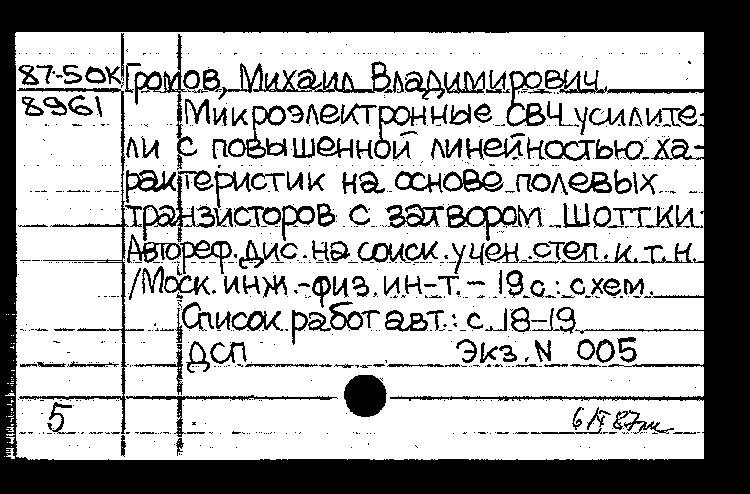 87-50К Громов, Михаил Владимирович.
8961 Микроэлектронные СВЧ усилите-
ли с повышенной линейностью ха-
рактеристик на основе полевых
транзисторов с затвором Шоттки:
Автореф. дис. на соиск. учен. степ. к. т. н.
/Моск. инж.-физ. ин-т. - 19 с.: схем.
Список работ авт.: с. 18-19.
ДСП Экз. N 005
5